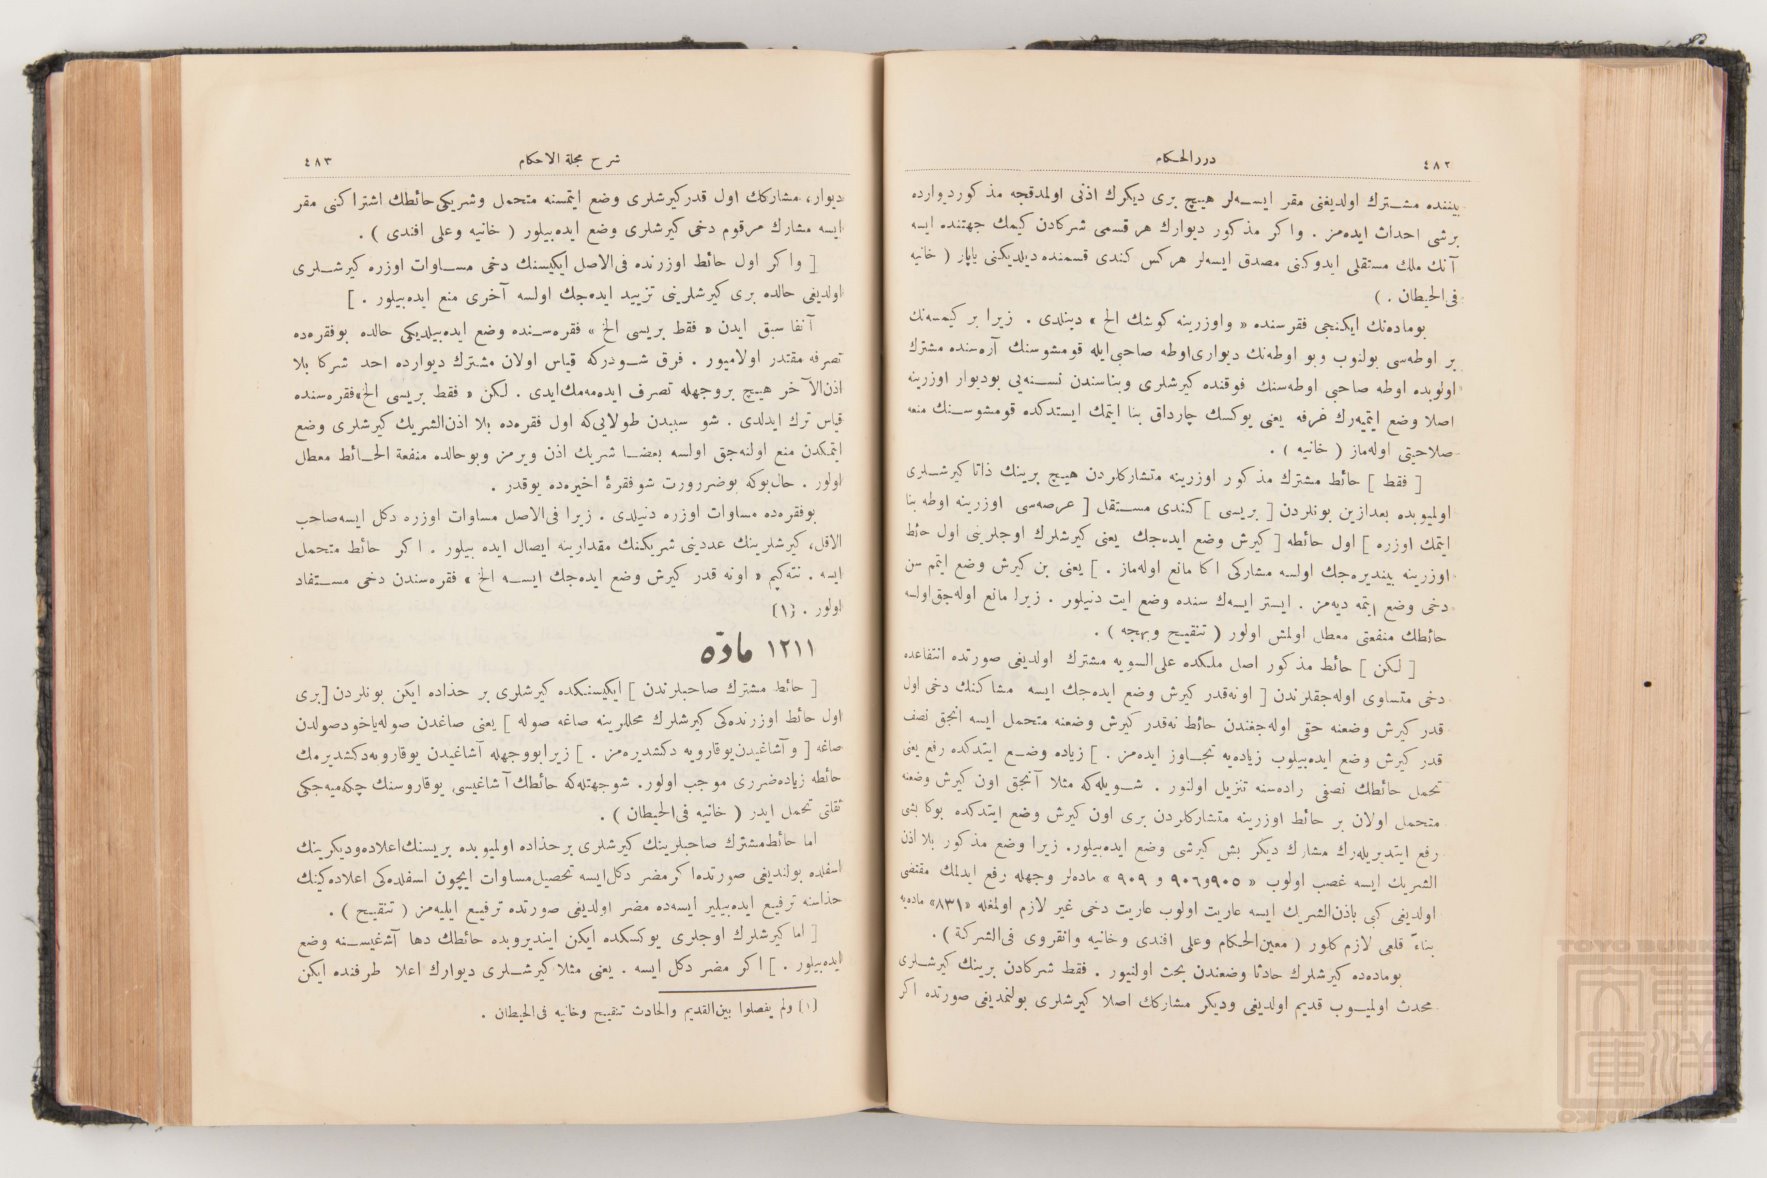 ٤٨٢
دررالحكام
بيننده مشترك اولديغنى مقر ايسه‌لر هيچ برى ديكرك اذنى اولمدقجه مذكور ديوارده
برشى احداث ايده‌مز . واكر مذكور ديوارك هر قسمى شركادن كيمك جهتنده ايسه
آنك ملك مستقلى ايدوكنى مصدق ايسه‌لر هركس كندى قسمنده ديلديكنى ياپار ( خانيه
فى‌الحيطان . )
بوماده‌نك ايكنجى فقره‌سنده « واوزرينه كوشك الخ » دينلدى . زيرا بر كيمسه‌نك
بر اوطه‌سى بولنوب وبو اوطه‌نك ديوارى اوطه صاحبى‌ايله قومشوسنك آره‌سنده مشترك
اولوبده اوطه صاحبى اوطه‌سنك فوقنده كيرشلرى وبناسندن نسنه‌يى بوديوار اوزرينه
اصلا وضع ايتميه‌رك غرفه يعنى يوكسك چارداق بنا ايتمك ايستدكده قومشوسنك منعه
صلاحيتى اوله‌ماز ( خانيه ) .
[ فقط ] حائط مشترك مذكور اوزرينه متشاركلردن هيچ برينك ذاتا كيرشلرى
اولميوبده بعدازين بونلردن [ بريسى ] كندى مستقل [ عرصه‌سى اوزرينه اوطه بنا
ايتمك اوزره ] اول حائطه [ كيرش وضع ايده‌جك يعنى كيرشلرك اوجلرينى اول حائط
اوزرينه بينديره‌جك اولسه مشاركى اكا مانع اوله‌ماز . ] يعنى بن كيرش وضع ايتمم سن
دخى وضع ايتمه ديه‌مز . ايستر ايسه‌ك سنده وضع ايت دنيلور . زيرا مانع اوله‌جق‌اولسه
حائطك منفعتى معطل اولمش اولور ( تنقيح وبهجه ) .
[ لكن ] حائط مذكور اصل ملكده على‌السويه مشترك اولديغى صورتده انتفاعده
دخى متساوى اوله‌جقلرندن [ اونه‌قدر كيرش وضع ايده‌جك ايسه مشاركنك دخى اول
قدر كيرش وضعنه حقى اوله‌جغندن حائط نه‌قدر كيرش وضعنه متحمل ايسه انجق نصف
قدر كيرش وضع ايده‌بيلوب زياده‌يه تجاوز ايده‌مز . ] زياده وضع ايتدكده رفع يعنى
تحمل حائطك نصفى راده‌سنه تنزيل اولنور . شويله‌كه مثلا آنجق اون كيرش وضعنه
متحمل اولان بر حائط اوزرينه متشاركلردن برى اون كيرش وضع ايتدكده بوكا بشى
رفع ايتديريله‌رك مشارك ديكر بش كيرشى وضع ايده‌بيلور. زيرا وضع مذكور بلا اذن
الشريك ايسه غصب اولوب « ٩٠٥و٩٠٦ و ٩٠٩ » ماده‌لر وجهله رفع ايدلمك مقتضى
اولديغى كبى باذن‌الشريك ايسه عاريت اولوب عاريت دخى غير لازم اولمغله «٨٣١» ماده‌يه
بناءً قلعى لازم كلور ( معين‌الحكام وعلى افندى وخانيه وانقروى فى‌الشركة ) .
بوماده‌ده كيرشلرك حادثا وضعندن بحث اولنيور . فقط شركادن برينك كيرشلرى
محدث اولميوب قديم اولديغى وديكر مشاركك اصلا كيرشلرى بولنمديغى صورتده اكر
شرح مجلة الاحكام
٤٨٣
ديوار، مشاركك اول قدر كيرشلرى وضع ايتمسنه متحمل وشريكى حائطك اشتراكنى مقر
ايسه مشارك مرقوم دخى كيرشلرى وضع ايده‌بيلور ( خانيه وعلى افندى ) .
[ واكر اول حائط اوزرنده فى‌الاصل ايكيسنك دخى مساوات اوزره كيرشلرى
اولديغى حالده برى كيرشلرينى تزييد ايده‌جك اولسه آخرى منع ايده‌بيلور . ]
آنفا سبق ايدن « فقط بريسى الخ » فقره‌سنده وضع ايده‌بيلديكى حالده بوفقره‌ده
تصرفه مقتدر اولاميور . فرق شودركه قياس اولان مشترك ديوارده احد شركا بلا
اذن‌الآخر هيچ بروجهله تصرف ايده‌مه‌مك‌ايدى . لكن « فقط بريسى الخ»فقره‌سنده
قياس ترك ايدلدى . شو سببدن طولايى‌كه اول فقره‌ده بلا اذن‌الشريك كيرشلرى وضع
ايتمكدن منع اولنه‌جق اولسه بعضا شريك اذن ويرمز وبوحالده منفعة الحائط معطل
اولور . حال‌بوكه بوضرورت شوفقرهٔ اخيره‌ده يوقدر .
بوفقره‌ده مساوات اوزره دنيلدى . زيرا فى‌الاصل مساوات اوزره دكل ايسه‌صاحب
الاقل، كيرشلرينك عددينى شريكنك مقدارينه ايصال ايده بيلور . اكر حائط متحمل
ايسه . نته‌كيم « اونه قدر كيرش وضع ايده‌جك ايسه الخ » فقره‌سندن دخى مستفاد
اولور . (١)
١٢١١ مادّه
[ حائط مشترك صاحبلرندن ] ايكيسنكده كيرشلرى بر حذاده ايكن بونلردن [برى
اول حائط اوزرنده‌كى كيرشلرك محللرينه صاغه صوله ] يعنى صاغدن صوله‌ياخودصولدن
صاغه [ و آشاغيدن‌يوقارويه دكشديره‌مز . ] زيرابووجهله آشاغيدن يوقارويه‌دكشديرمك
حائطه زياده‌ضررى موجب اولور. شوجهتله‌كه حائطك آشاغيسى، يوقاروسنك چكه‌ميه‌جكى
ثقلتى تحمل ايدر ( خانيه فى‌الحيطان ) .
اما حائط‌مشترك صاحبلرينك كيرشلرى برحذاده اولميوبده بريسنك‌اعلاده‌وديكرينك
اسفلده بولنديغى صورتده‌اكرمضر دكل‌ايسه تحصيل‌مساوات ايچون اسفلده‌كى اعلاده‌كينك
حذاسنه ترفيع ايده‌بيلير ايسه‌ده مضر اولديغى صورتده ترفيع ايليه‌مز ( تنقيح ) .
[ اما كيرشلرك اوجلرى يوكسكده ايكن اينديروبده حائطك دها آشغيسنه وضع
ايده‌بيلور . ] اكر مضر دكل ايسه . يعنى مثلا كيرشلرى ديوارك اعلا طرفنده ايكن
(١) ولم يفصلوا بين‌القديم والحادث تنقيح وخانيه فى‌الحيطان .
TOYO BUNKO
東洋
文庫
TOYO BUNKO